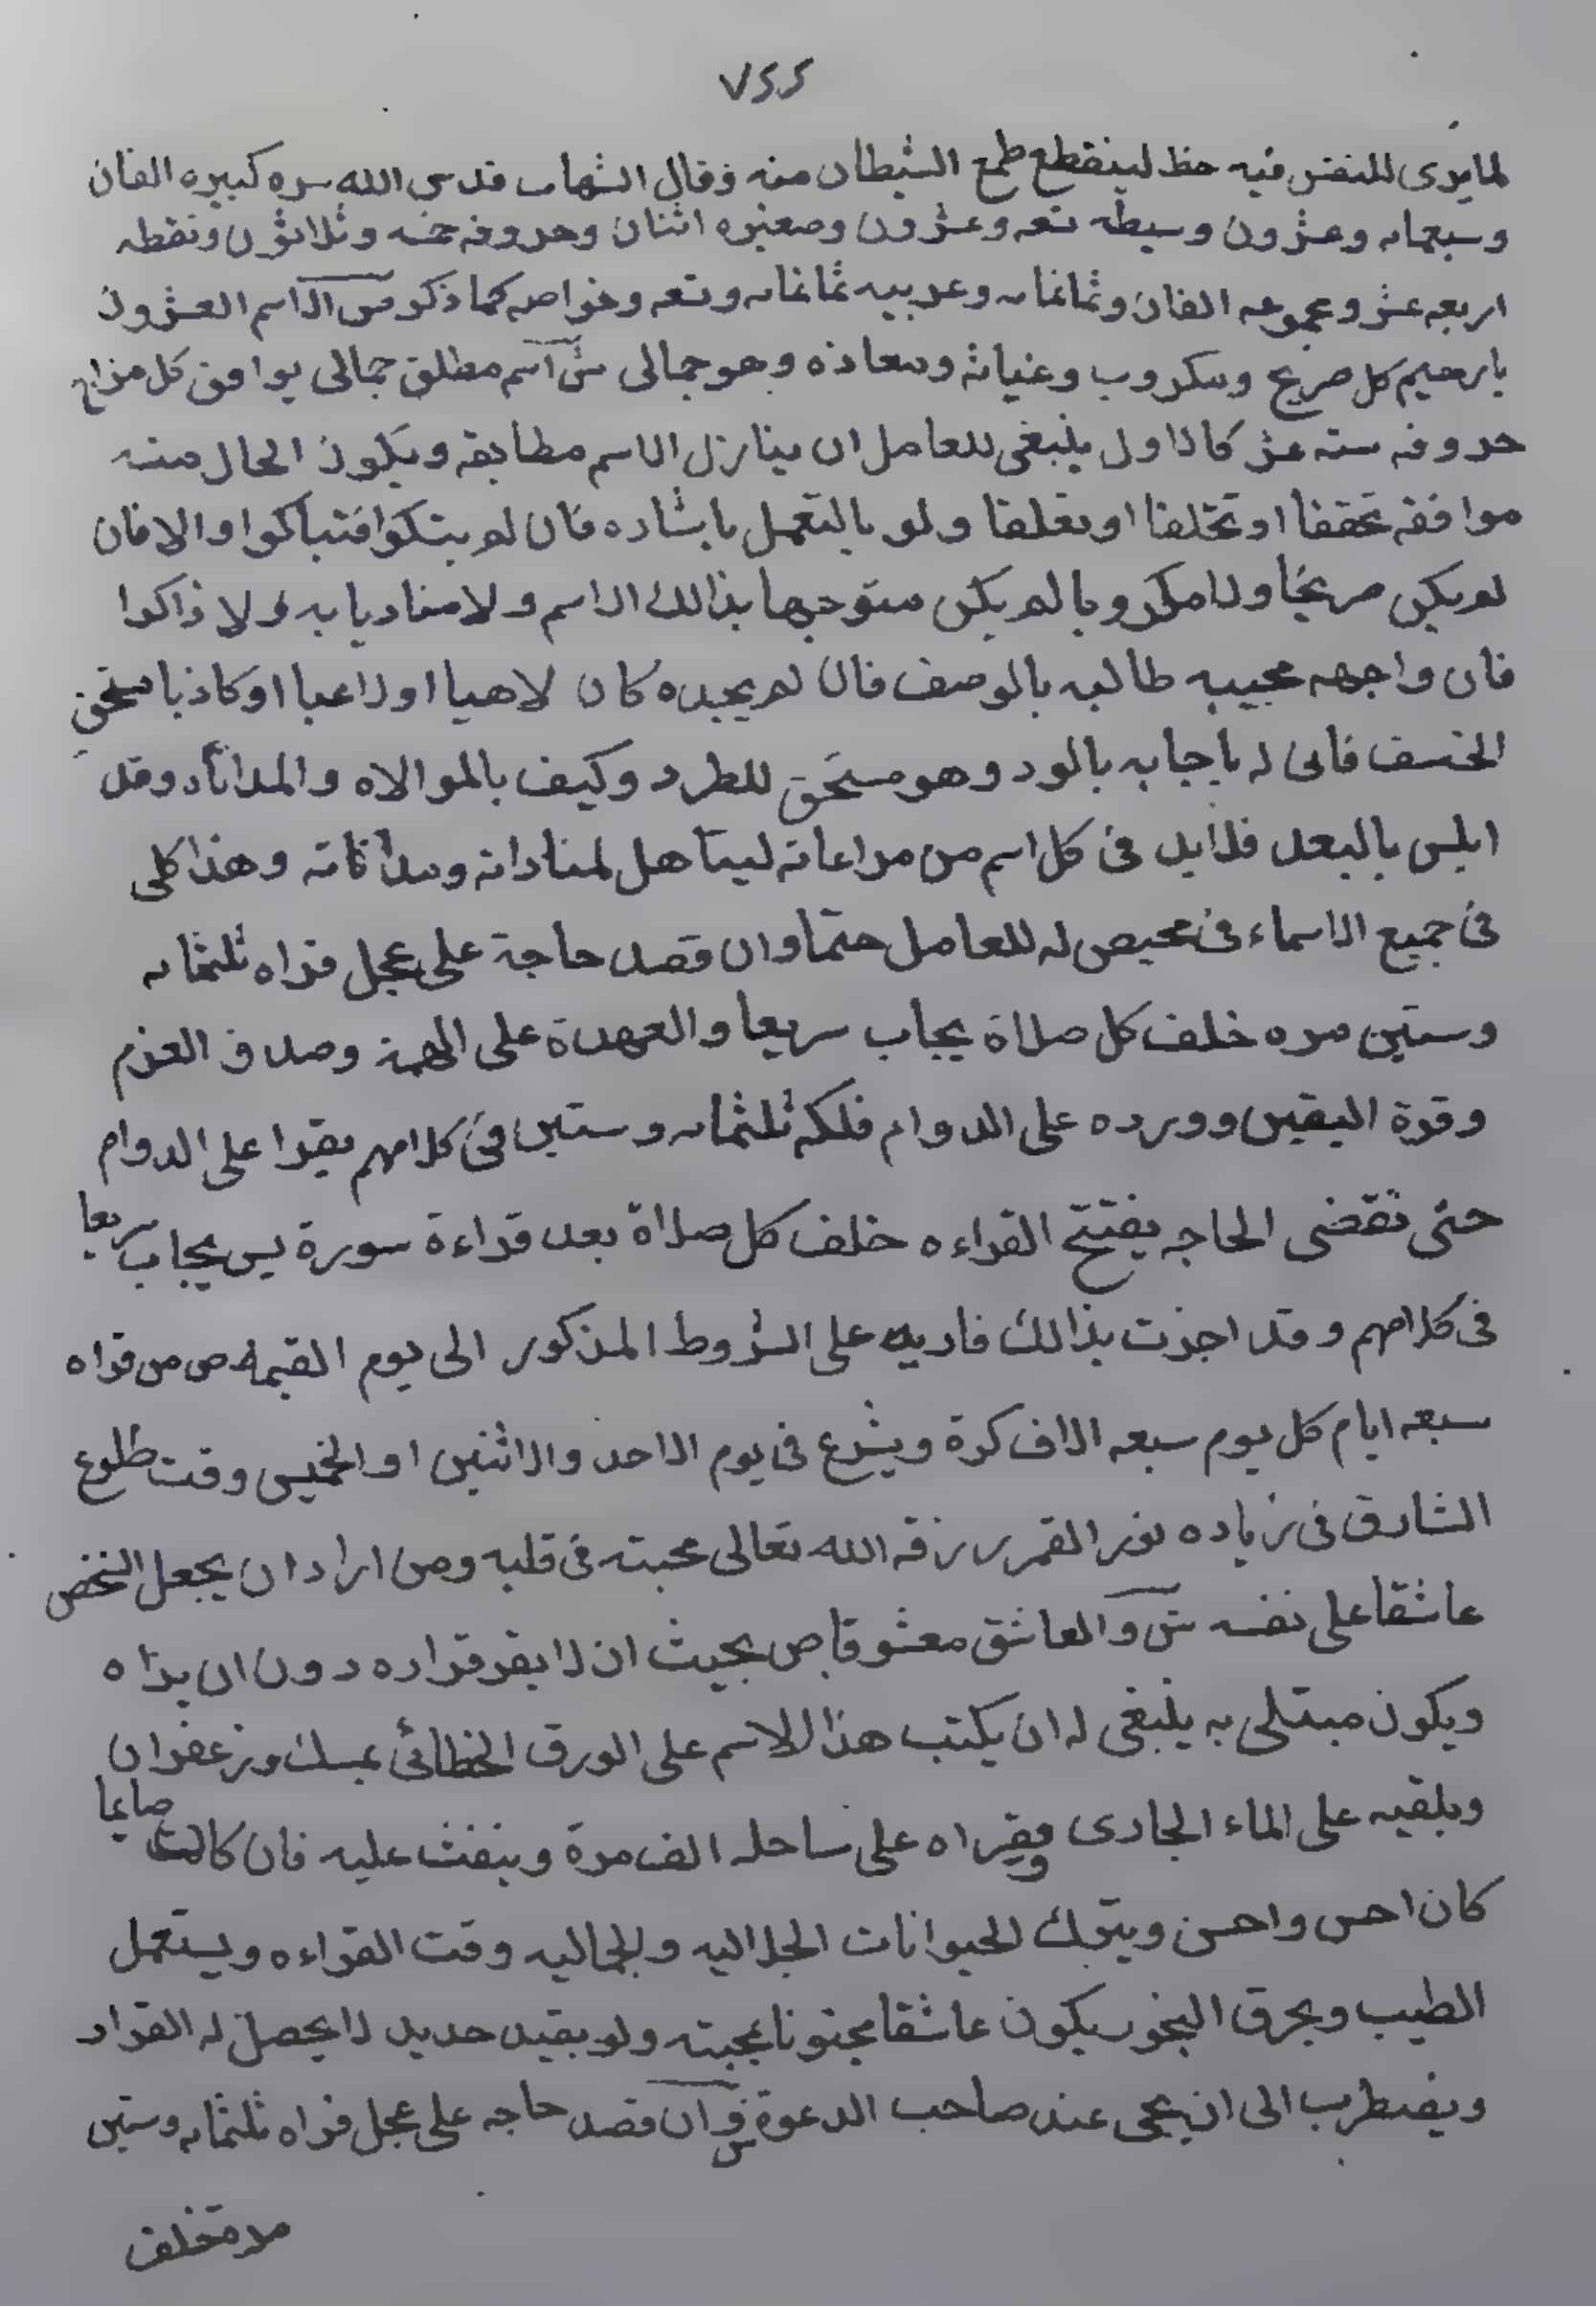 ٧٢٢
لما يرى للنفس فيه حظ لينقطع طمع الشيطان منه وقال الشهاب قدس الله سره كبيره الفان
وسبعمايه وعشرون وسيطه تسعه وعشرون وصغيره اثنان وحروفه خمسه وثلاثون ونقطه
اربعه عشر ومجموعه الفان وثمانمايه وعربيه ثمانمايه وتسعه وخواصه كما ذكر الاسم العشرون
يا رحيم كل صريخ ومكروب وغياثه ومعاذه وهو جمالى ش اسم مطلق جمالى يوافق كل مزاج
حروفه سته عشر كالاول ينبغى للعامل ان ينازل الاسم مطابقه ويكون الحال منه
موافقه تحققا او تخلقا او تعلقا ولو بالتعمل باشاره فان لم يبتكوا فتباكوا والا فان
لم يكن صريخا ولا مكروبا لم يكن متوجها بذالك الاسم ولا مناديا به ولا ذاكرا
فان واجهه مجيبه طالبه بالوصف فان لم يجده كان لاهيا او لاعبا او كاذبا مستحق
الخسف فانى له باجابه بالود وهو مستحق للطرد وكيف بالموالاه والمداناه وقد
ابلس بالبعد فلابد فى كل اسم من مراعاته ليتاهل لمناداته ومداناته وهذا كلى
فى جميع الاسماء فى محيص له للعامل حتما وان قصد حاجة على عجل قراه ثلثمايه
وستين مره خلف كل صلاة يجاب سريعا والعهدة على الهمة وصدق العزم
وقوة اليقين وورده على الدوام فلكه ثلثمايه وستين فى كلامهم يقرا على الدوام
حتى تقضى الحاجه يفتتح القراءه خلف كل صلاة بعد قراءة سورة يس يجاب سريعا
فى كلامهم وقد اجزت بذالك قاريه على الشروط المذكور الى يوم القيمه ص من قراه
سبعه ايام كل يوم سبعه الاف كرة ويشرع فى يوم الاحد والاثنين او الخميس وقت طلوع
الشارق فى زياده نور القمر رزقه الله تعالى محبته فى قلبه ومن اراد ان يجعل الشخص
عاشقا على نفسه ش والعاشق معشوقا ص بحيث ان لا يقر قراره دون ان يراه
ويكون مبتلى به ينبغى له ان يكتب هذا الاسم على الورق الخطائى بمسك وزعفران
ويلقيه على الماء الجارى ويقراه على ساحله الف مرة وينفث عليه فان كان صايما
كان احسن واحسن ويترك الحيوانات الجلاليه والجماليه وقت القراءه ويستعمل
الطيب ويحرق البخور يكون عاشقا مجنونا بمحبته ولو بقيد حديد لا يحصل له القرار
ويضطرب الى ان يجى عند صاحب الدعوة وان قصد حاجه على عجل قراه ثلثمايه وستين
مرة خلف